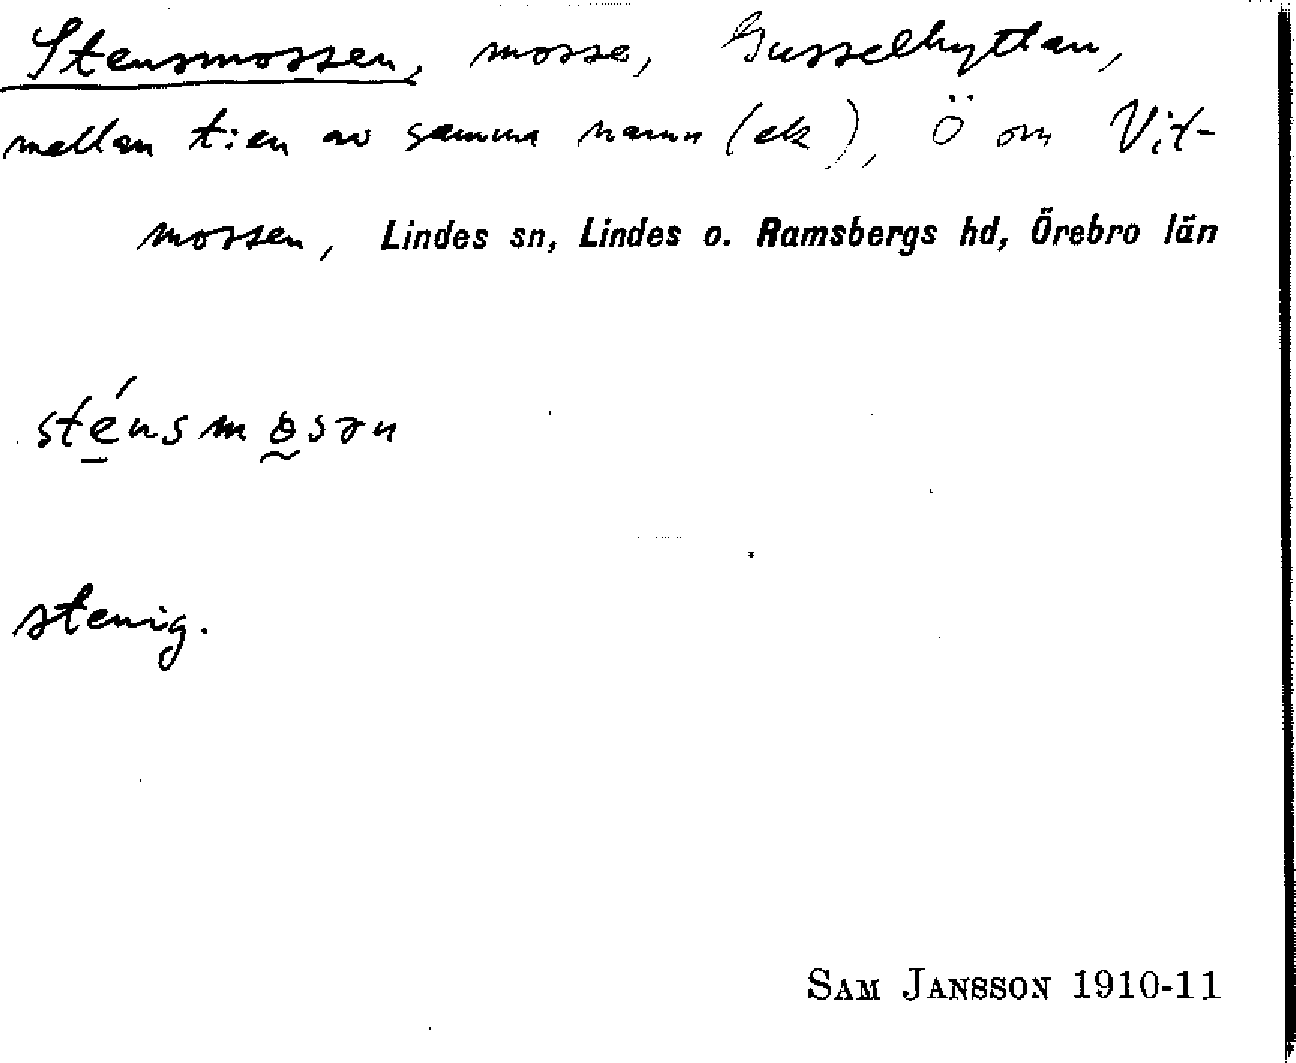 Stensmossen, mosse, Gusselhyttan,
mellan t:en av samma namn (ek), Ö om Vit-
mossen, Lindes sn, Lindes o. Ramsbergs hd, Örebro län
sténsmɵsən
stenig.
SAM JANSSON 1910-11